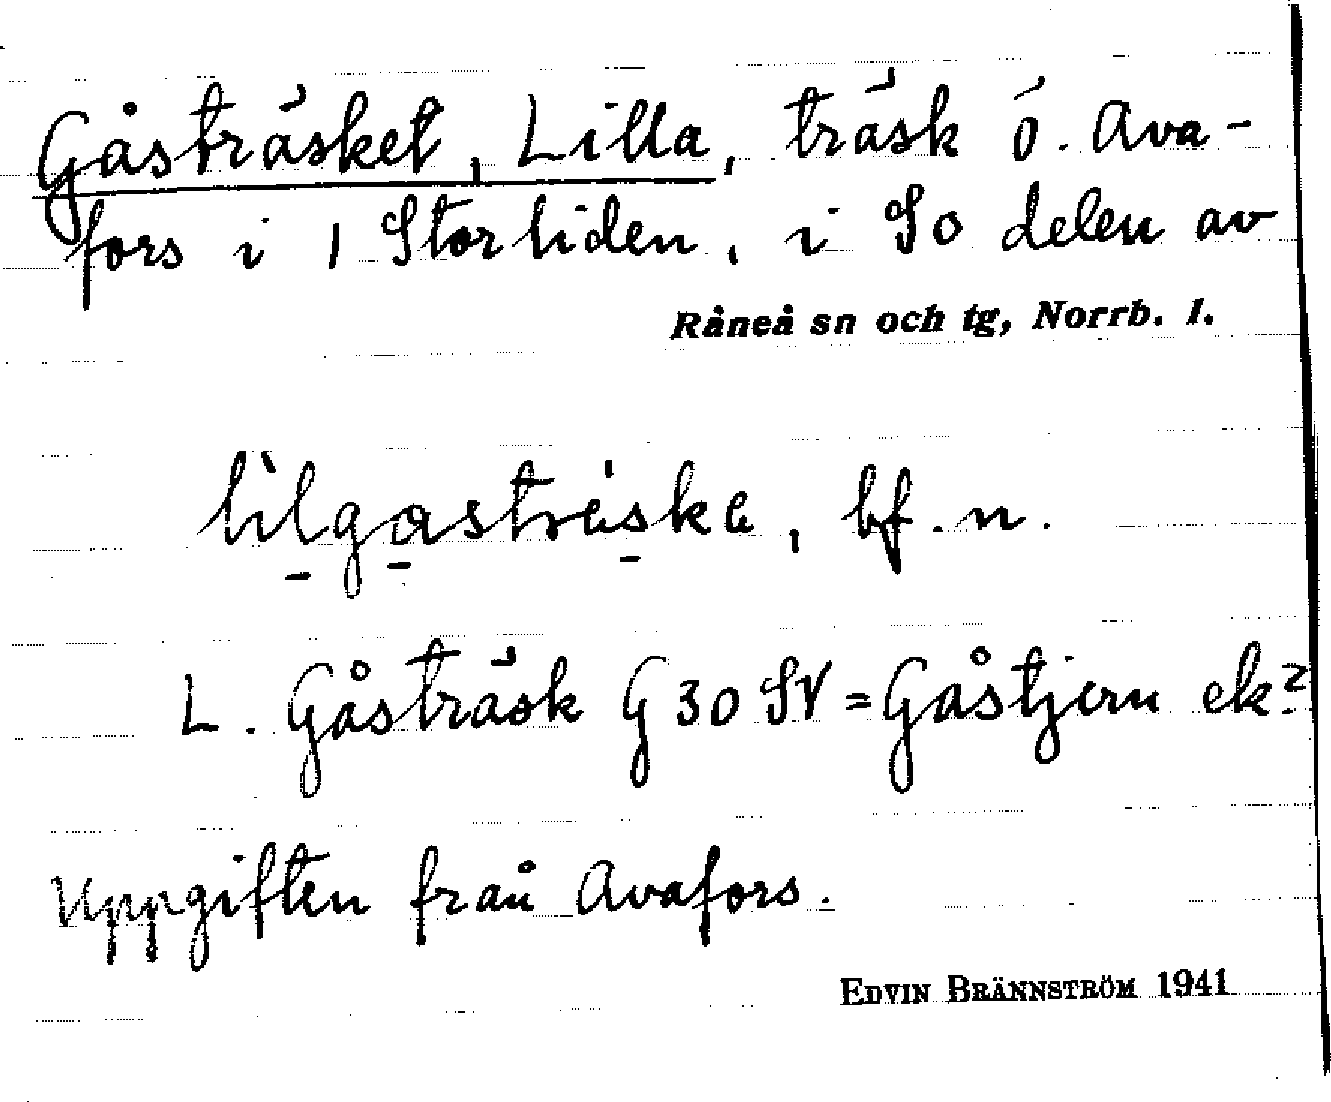 Gåsträsket, Lilla, träsk ö. Ava-
fors i 1 Storliden, i SO delen av
Råneå sn och tg, Norrb. l.
lìlgastréska, bf. n.
L. Gåsträsk G 30 SV = Gåstjern ek?
Uppgiften från Avafors.
EDVIN BRÄNNSTRÖM 1941